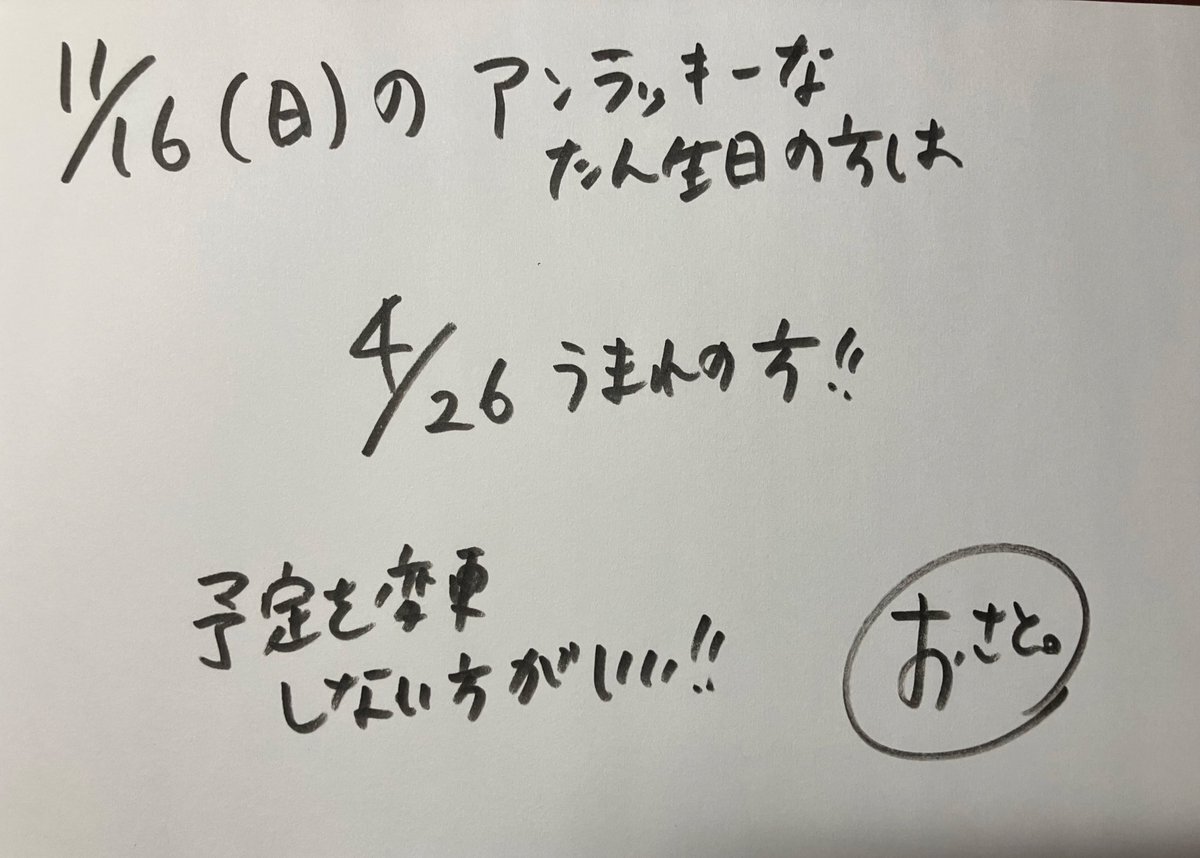 11/16(日)のアンラッキーな
たん生日の方は
4/26うまれの方!!
予定を変更
しない方がいい!!
おさと。